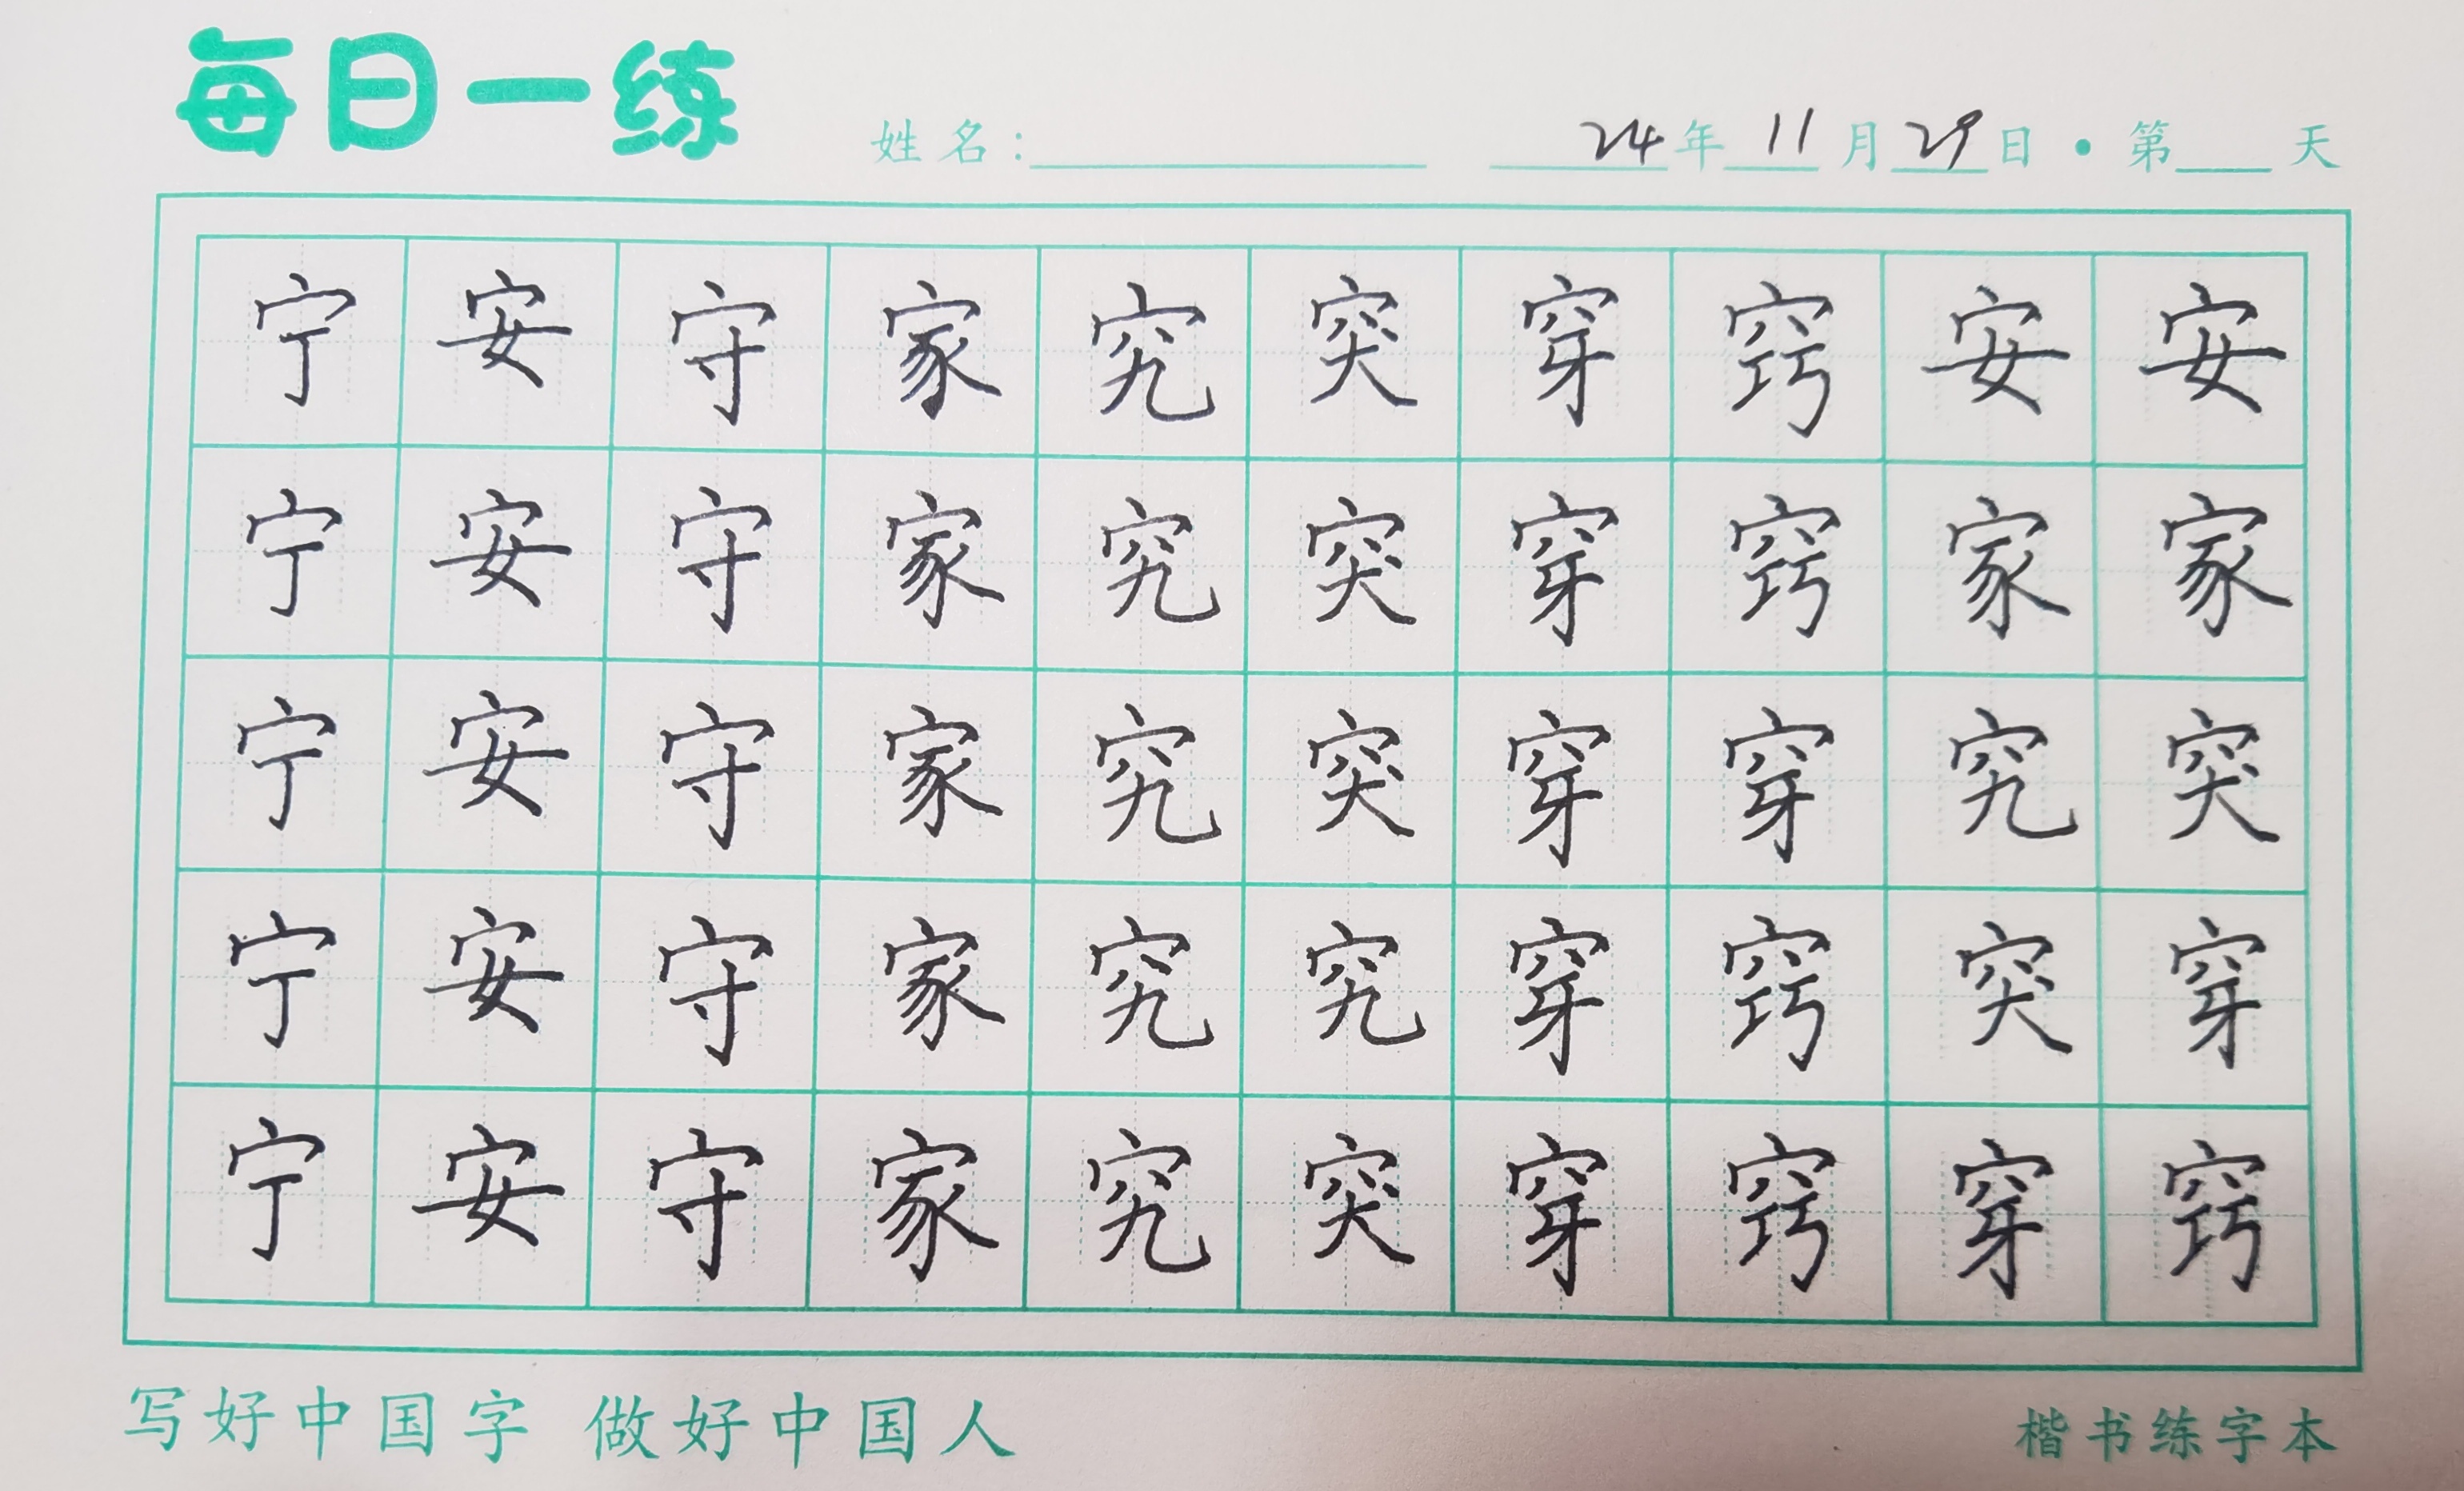 每日一练
姓名: 24年11月29日·第 天
宁安守家究突穿窍安安
宁安守家究突穿窍家家
宁安守家究突穿穿究突
宁安守家究究穿窍突穿
宁安守家究突穿窍穿窍
写好中国字 做好中国人
楷书练字本